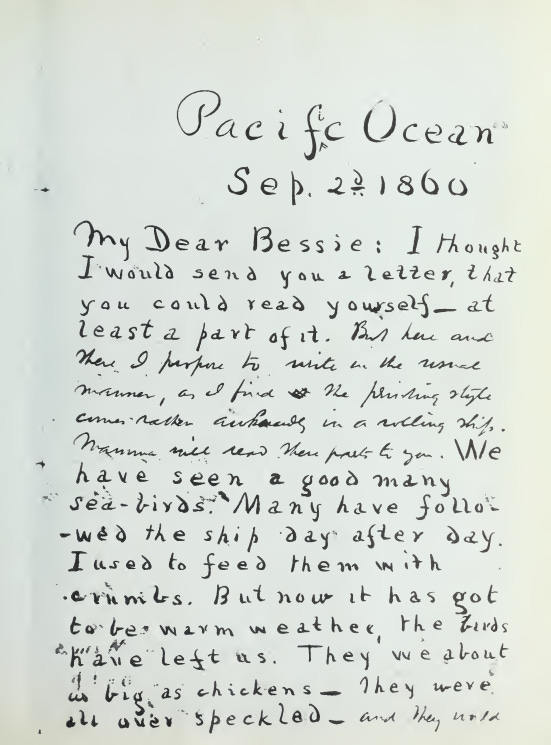 Pacific Ocean
Sep. 2d 1860
My Dear Bessie: I thought
I would send you a letter, that
you could read yourself — at
least a part of it. But here and
there I propose to write in the usual
manner, as I find the printing style
comes rather awkwardly in a rolling ship.
Mamma will read these parts to you. We
have seen a good many
sea-birds. Many have follo-
-wed the ship day after day.
I used to feed them with
crumbs. But now it has got
to be warm weather, the birds
have left us. They we about
as big as chickens — They were
all over speckled — and they